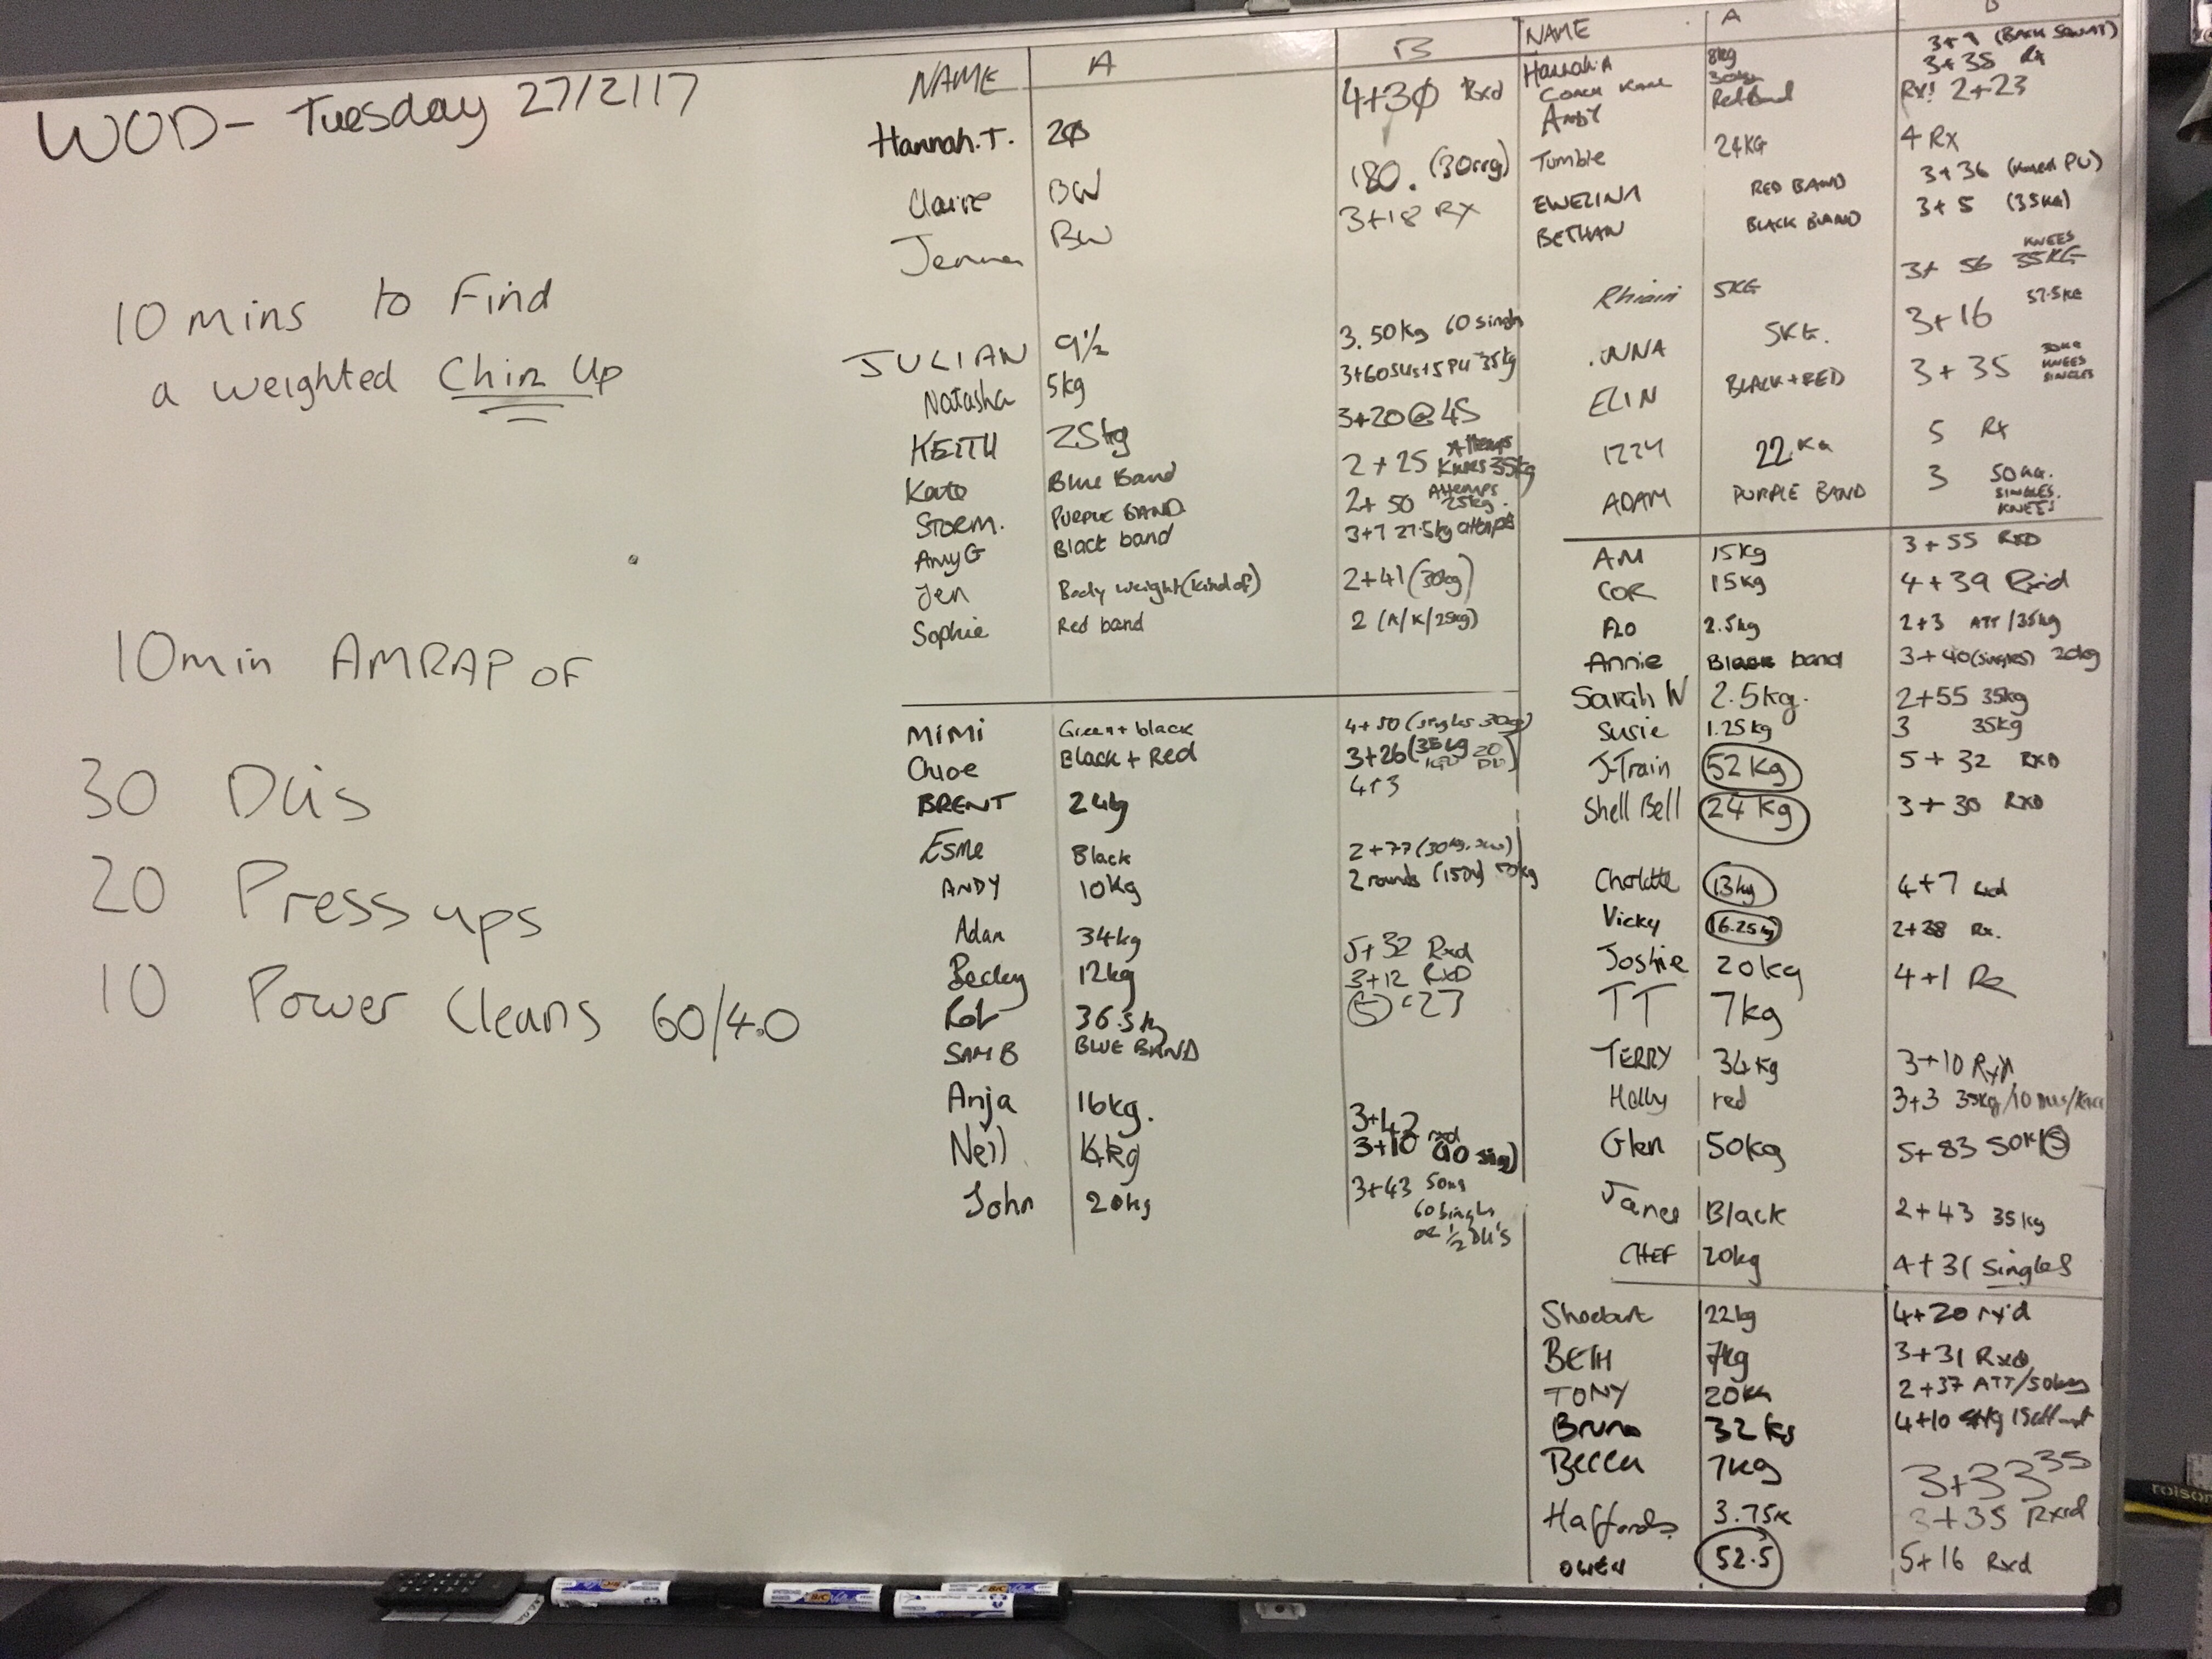 WOD - Tuesday 27/2/17
10 mins to Find
a weighted Chin Up
10 min AMRAP OF
30 DUs
20 Press ups
10 Power Cleans 60/40
NAME A B
Hannah.T. 20 4+30 Rxd
Claire BW 180.
Jenna BW 3+18 RX
JULIAN 9½ 3. 50kg 60 singls
Natasha 5kg 3+60SUs+5PU 35kg
KEITH 25kg 3+20@45
Kate Blue Band 2+25 Attemps Knees 35kg
STORM. PURPLE BAND. 2+50 Attemps 25kg.
AmyG Black band 3+7 27.5kg attempts
Jen Body weight (kind of) 2+41 (30kg)
Sophie Red band 2 (A/K/25kg)
MiMi Green + black 4+50 (singles 30kg)
Chloe Black + Red 3+26 (35kg 20 DU)
BRENT 24kg 4+3
Esme Black 2+77
ANDY 10kg 2 rounds 50kg
Adam 34kg 5+32 Rxd
Becky 12kg 3+12 RXD
Rob 36.5kg 5+27
SAM B BLUE BAND
Anja 16kg. 3+42 rxd
Neil 14kg 3+10
John 20kg 3+43 50kg
60 Singls
or ½ DU's
NAME A B
Hannah.A 8kg 3+9 (BACK SQUAT)
Coach 30kg 3+35 Rx
AMDY Red Band RX! 2+23
Tumble 24KG 4 RX
EWELINA RED BAND 3+36 (Kneel PU)
BETHAN BLACK BAND 3+5 (35KG)
Rhian 5KG 3+56 KNEES 35KG
5KG. 3+16 37.5KG
ELIN BLACK+RED 3+35 30KG KNEES SINGLES
IZZY 22KG 5 RX
ADAM PURPLE BAND 3 50KG. SINGLES. KNEES
AM 15kg 3+55 RXD
COR 15kg 4+39 Rxd
FLO 2.5kg 2+3 ATT/35kg
Annie Black band 3+40 (singles) 20kg
Sarah W 2.5kg. 2+55 35kg
Susie 1.25kg 3 35kg
J-Train 52 kg 5+32 RXD
Shell Bell 24 kg 3+30 RXD
Charlotte 13kg 4+7 rxd
Vicky 16.25kg 2+28 Rx.
Joshie 20kg 4+1 Rx
TT 7kg
TERRY 34kg 3+10 Rxd
Holly red 3+3 35kg/10 DUs/Knee
Glen 50kg 5+83 50KG
James Black 2+43 35kg
CHEF 20kg 4+31 Singles
Shoebart 22kg 4+20 rx'd
BETH 7kg 3+31 RXD
TONY 20KG 2+37 ATT/50kg
Bruno 32kg 4+10
Becca 7kg 3+33 35
Haffords 3.75K 3+35 Rxd
OWEN 52.5 5+16 Rxd
BIC
BIC
BIC